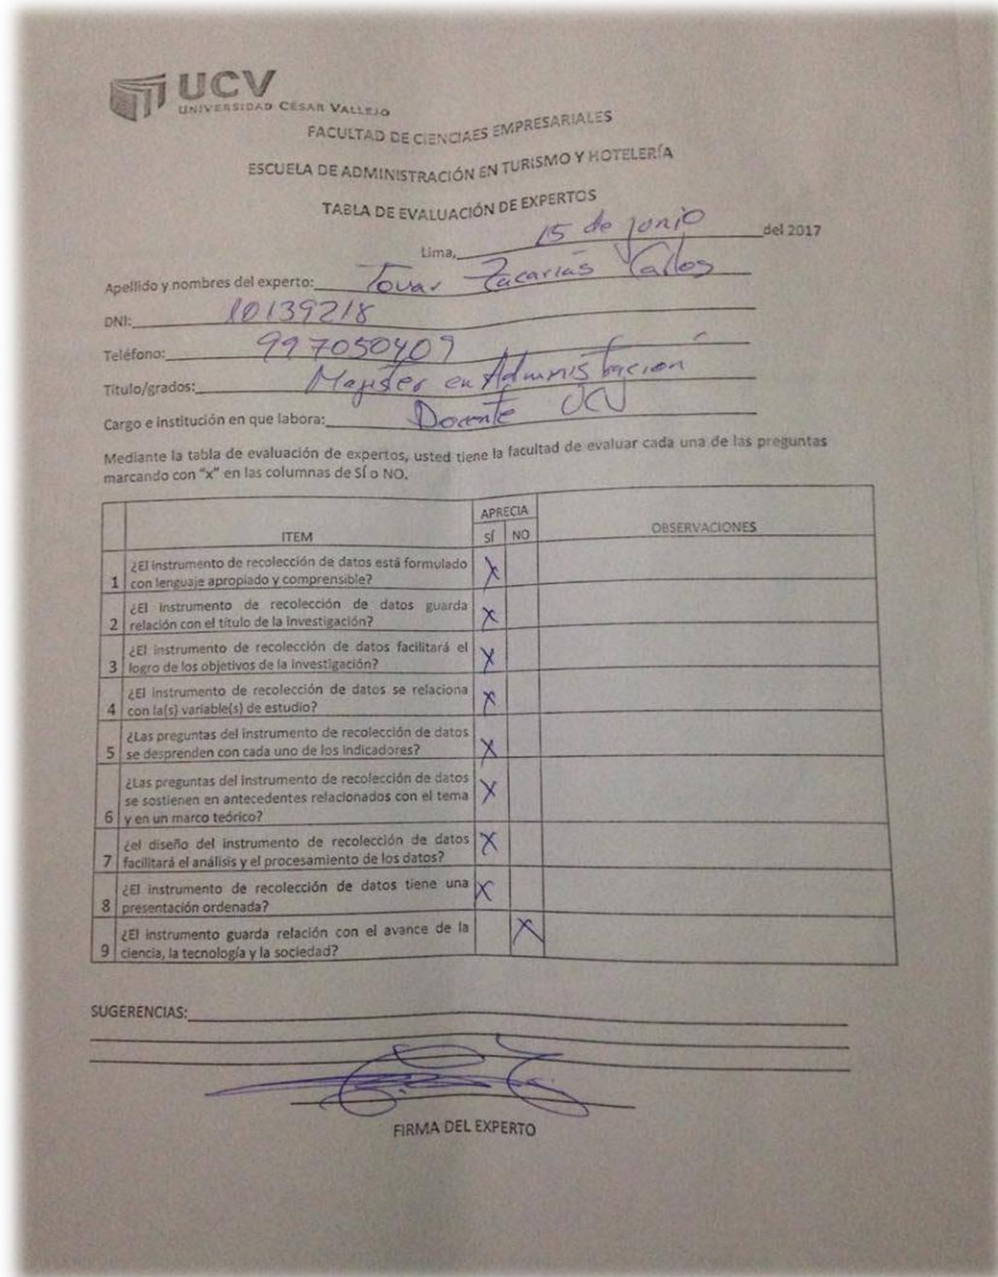 UCV
UNIVERSIDAD CÉSAR VALLEJO
FACULTAD DE CIENCIAES EMPRESARIALES
ESCUELA DE ADMINISTRACIÓN EN TURISMO Y HOTELERÍA
TABLA DE EVALUACIÓN DE EXPERTOS
Lima, 15 de junio del 2017
Apellido y nombres del experto: Tovar Zacarías Carlos
DNI: 10139218
Teléfono: 997050409
Título/grados: Magister en Administración
Cargo e institución en que labora: Docente UCV
Mediante la tabla de evaluación de expertos, usted tiene la facultad de evaluar cada una de las preguntas
marcando con "x" en las columnas de SÍ o NO.
APRECIA
ITEM SÍ NO OBSERVACIONES
¿El instrumento de recolección de datos está formulado
1 con lenguaje apropiado y comprensible? X
¿El instrumento de recolección de datos guarda
2 relación con el título de la investigación? X
¿El instrumento de recolección de datos facilitará el
3 logro de los objetivos de la investigación? X
¿El instrumento de recolección de datos se relaciona
4 con la(s) variable(s) de estudio? X
¿Las preguntas del instrumento de recolección de datos
5 se desprenden con cada uno de los indicadores? X
¿Las preguntas del instrumento de recolección de datos
se sostienen en antecedentes relacionados con el tema X
6 y en un marco teórico?
¿el diseño del instrumento de recolección de datos X
7 facilitará el análisis y el procesamiento de los datos?
¿El instrumento de recolección de datos tiene una X
8 presentación ordenada?
¿El instrumento guarda relación con el avance de la X
9 ciencia, la tecnología y la sociedad?
SUGERENCIAS:
FIRMA DEL EXPERTO